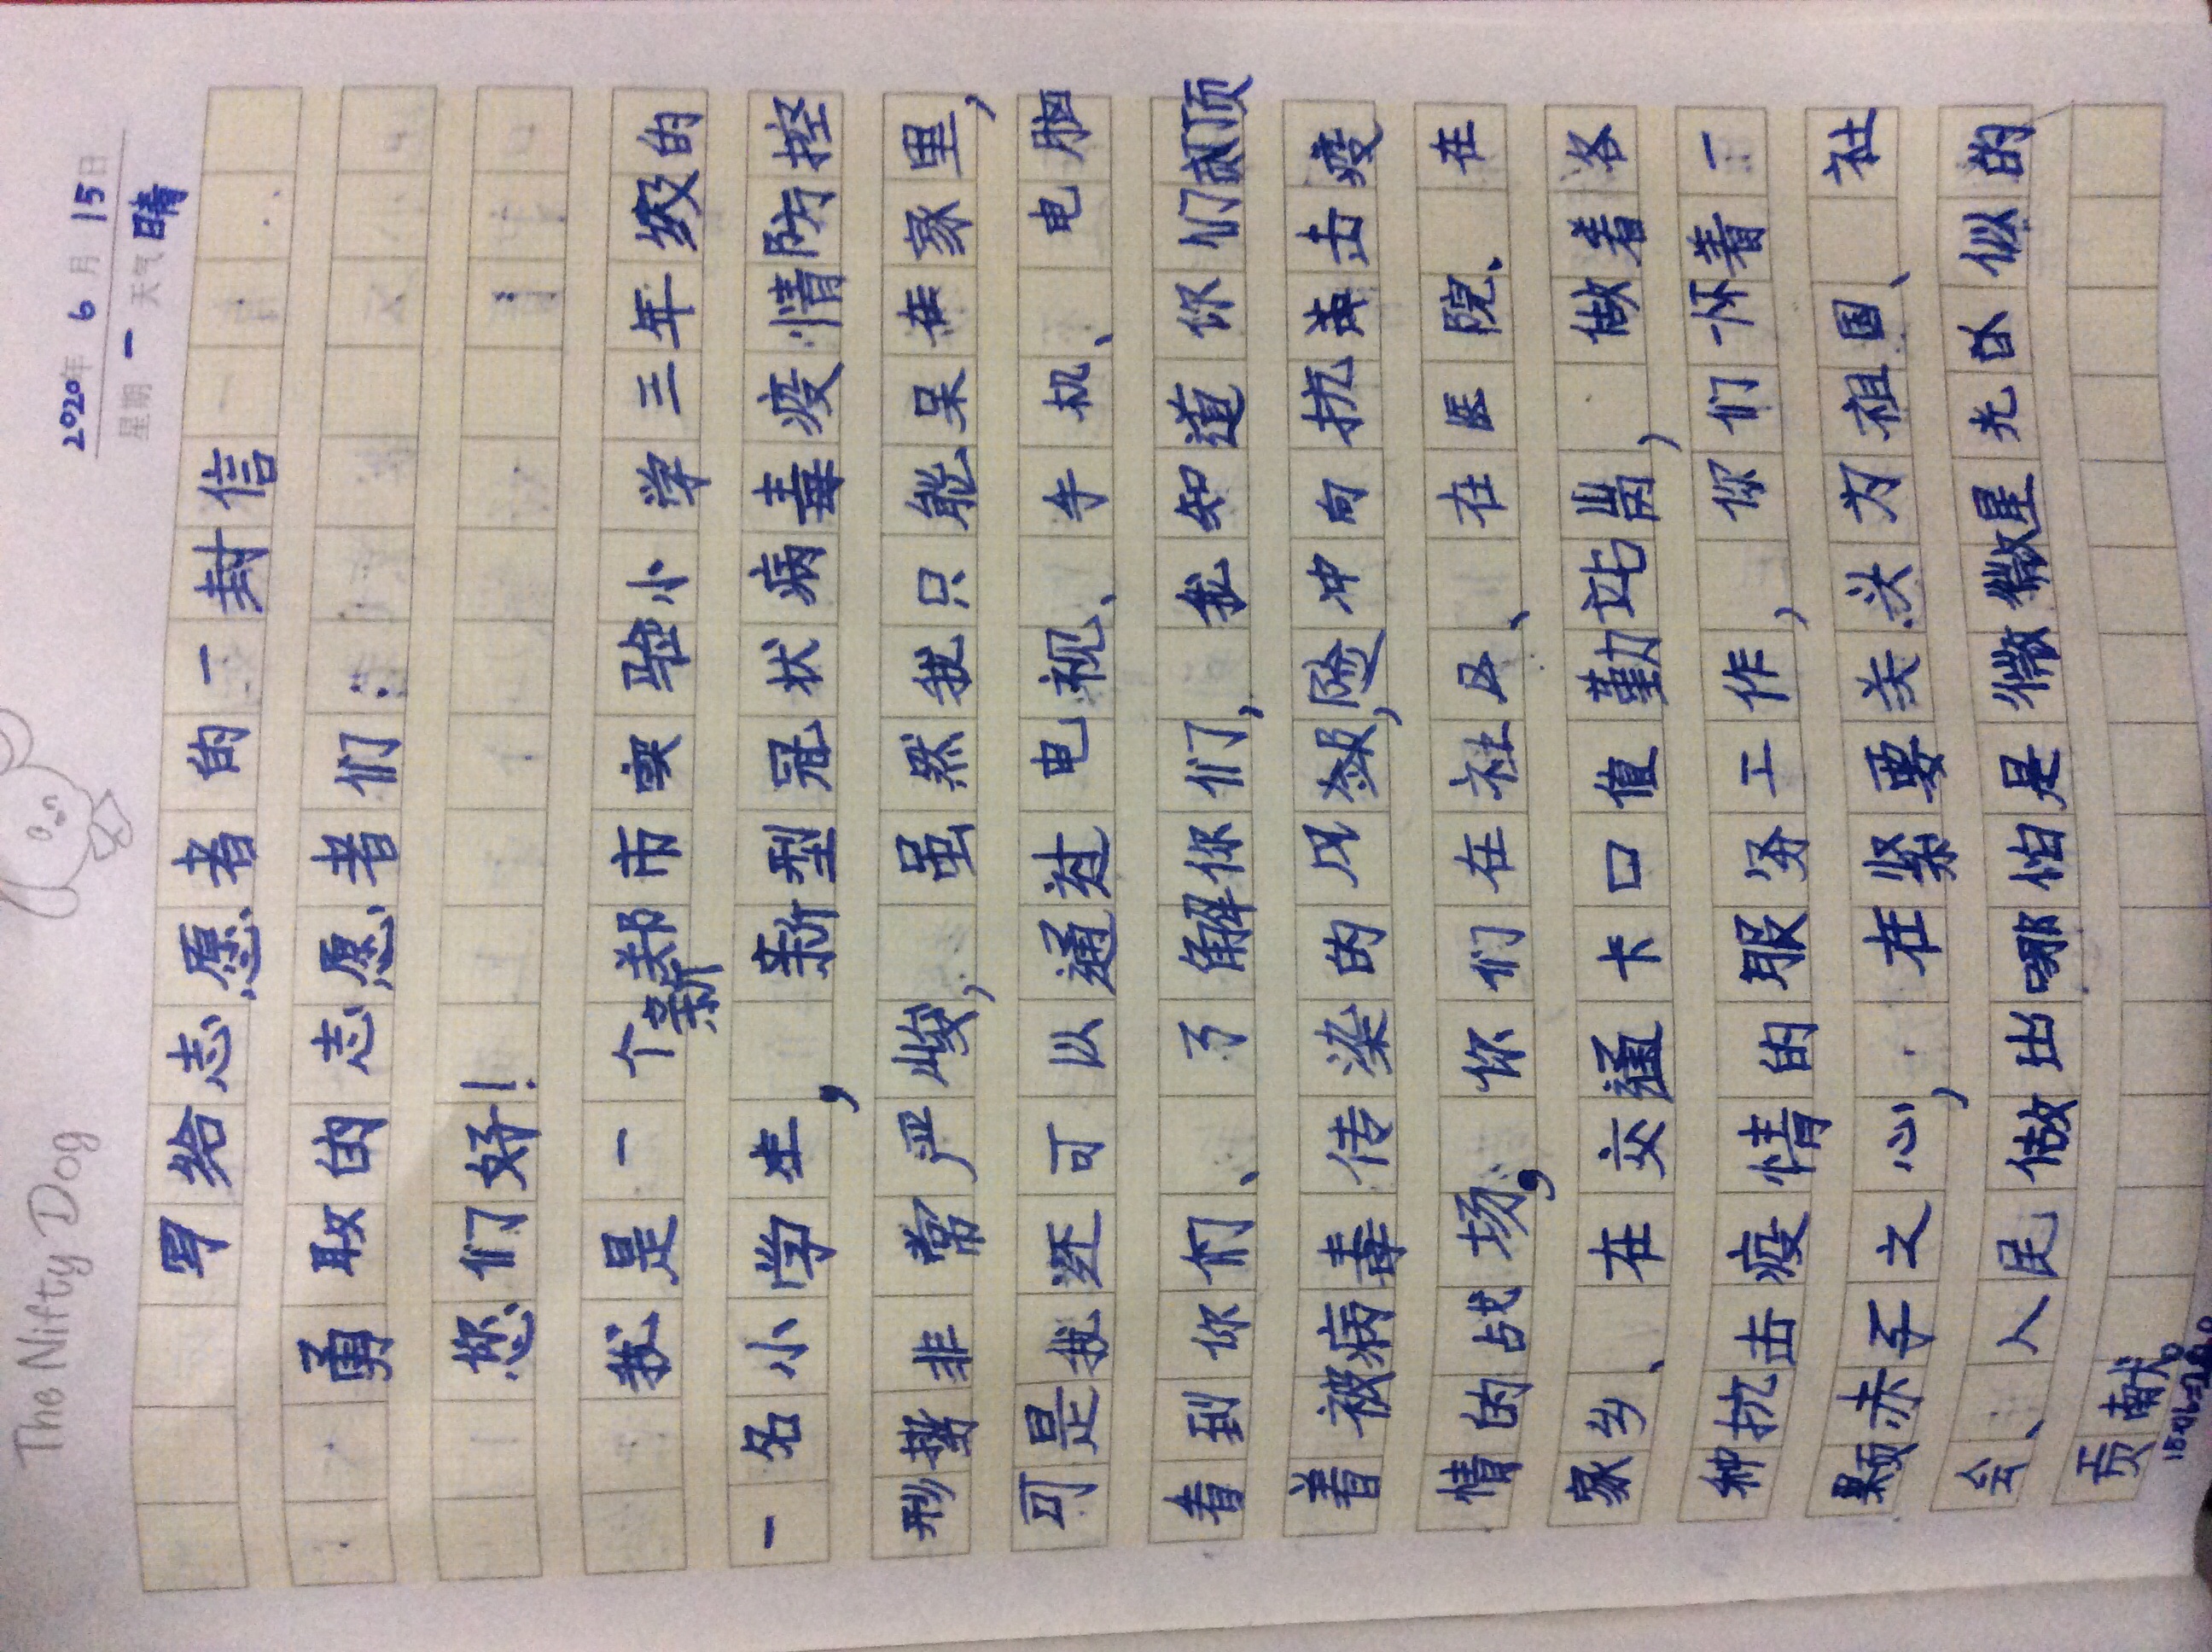 The Nifty Dog
2020年 6 月 15 日
星期 一 天气 晴
写给志愿者的一封信
勇敢的志愿者们：
您们好！
我是一个新郑市实验小学三年级的
一名小学生，新型冠状病毒疫情防控
形势非常严峻，虽然我只能呆在家里，
可是我还可以通过电视、手机、电脑
看到你们、了解你们，我知道你们都顶
着被病毒传染的风险，冲向抗击疫
情的战场，你们在社区、在医院、在
家乡、在交通卡口值勤站岗，做着各
种抗击疫情的服务工作，你们怀着一
颗赤子之心，在紧要关头为祖国、社
会、人民做出哪怕是微微星光似的
贡献